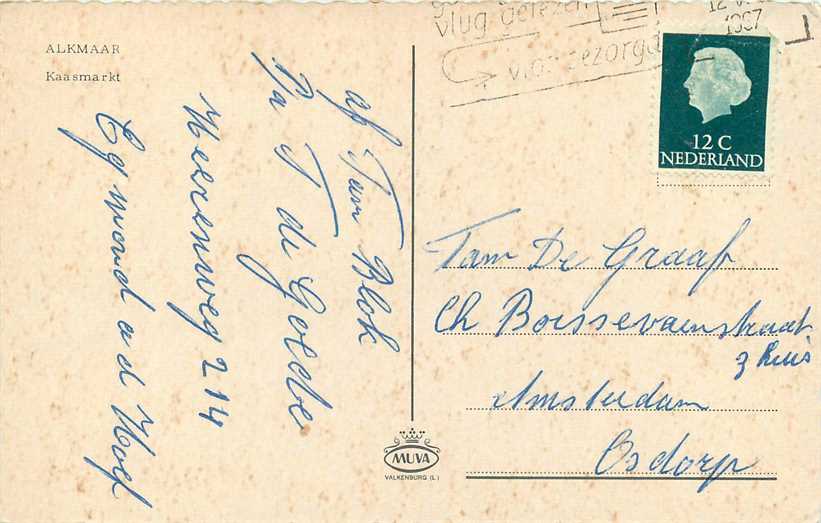 ALKMAAR
Kaasmarkt
af Tam Blok
P/a T de Goede
Heerenweg 214
Egmond a d Hoef
vlug gelezen
vlot bezorgd
1967
12 C
NEDERLAND
Tam De Graaf
Ch Boissevainstraat
3 huis
Amsterdam
Osdorp
MUVA
VALKENBURG (L.)